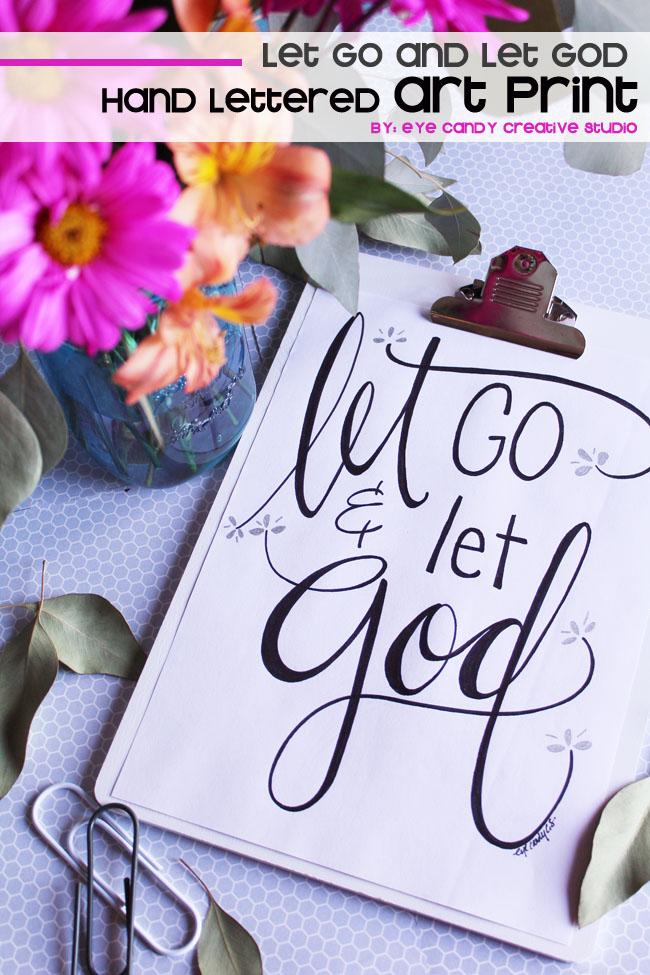 Let Go and Let God
Hand Lettered Art Print
BY: Eye Candy Creative Studio
let GO
& let
God
eye candy c.s.